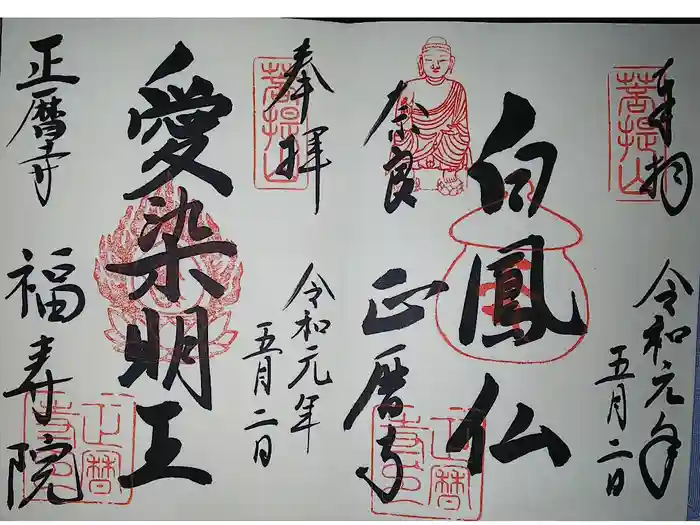 奉拝
菩提山
令和元年
五月二日
白鳳仏
奈良
正暦寺
正暦寺印
奉拝
菩提山
令和元年
五月二日
愛染明王
正暦寺
福寿院
正暦寺印